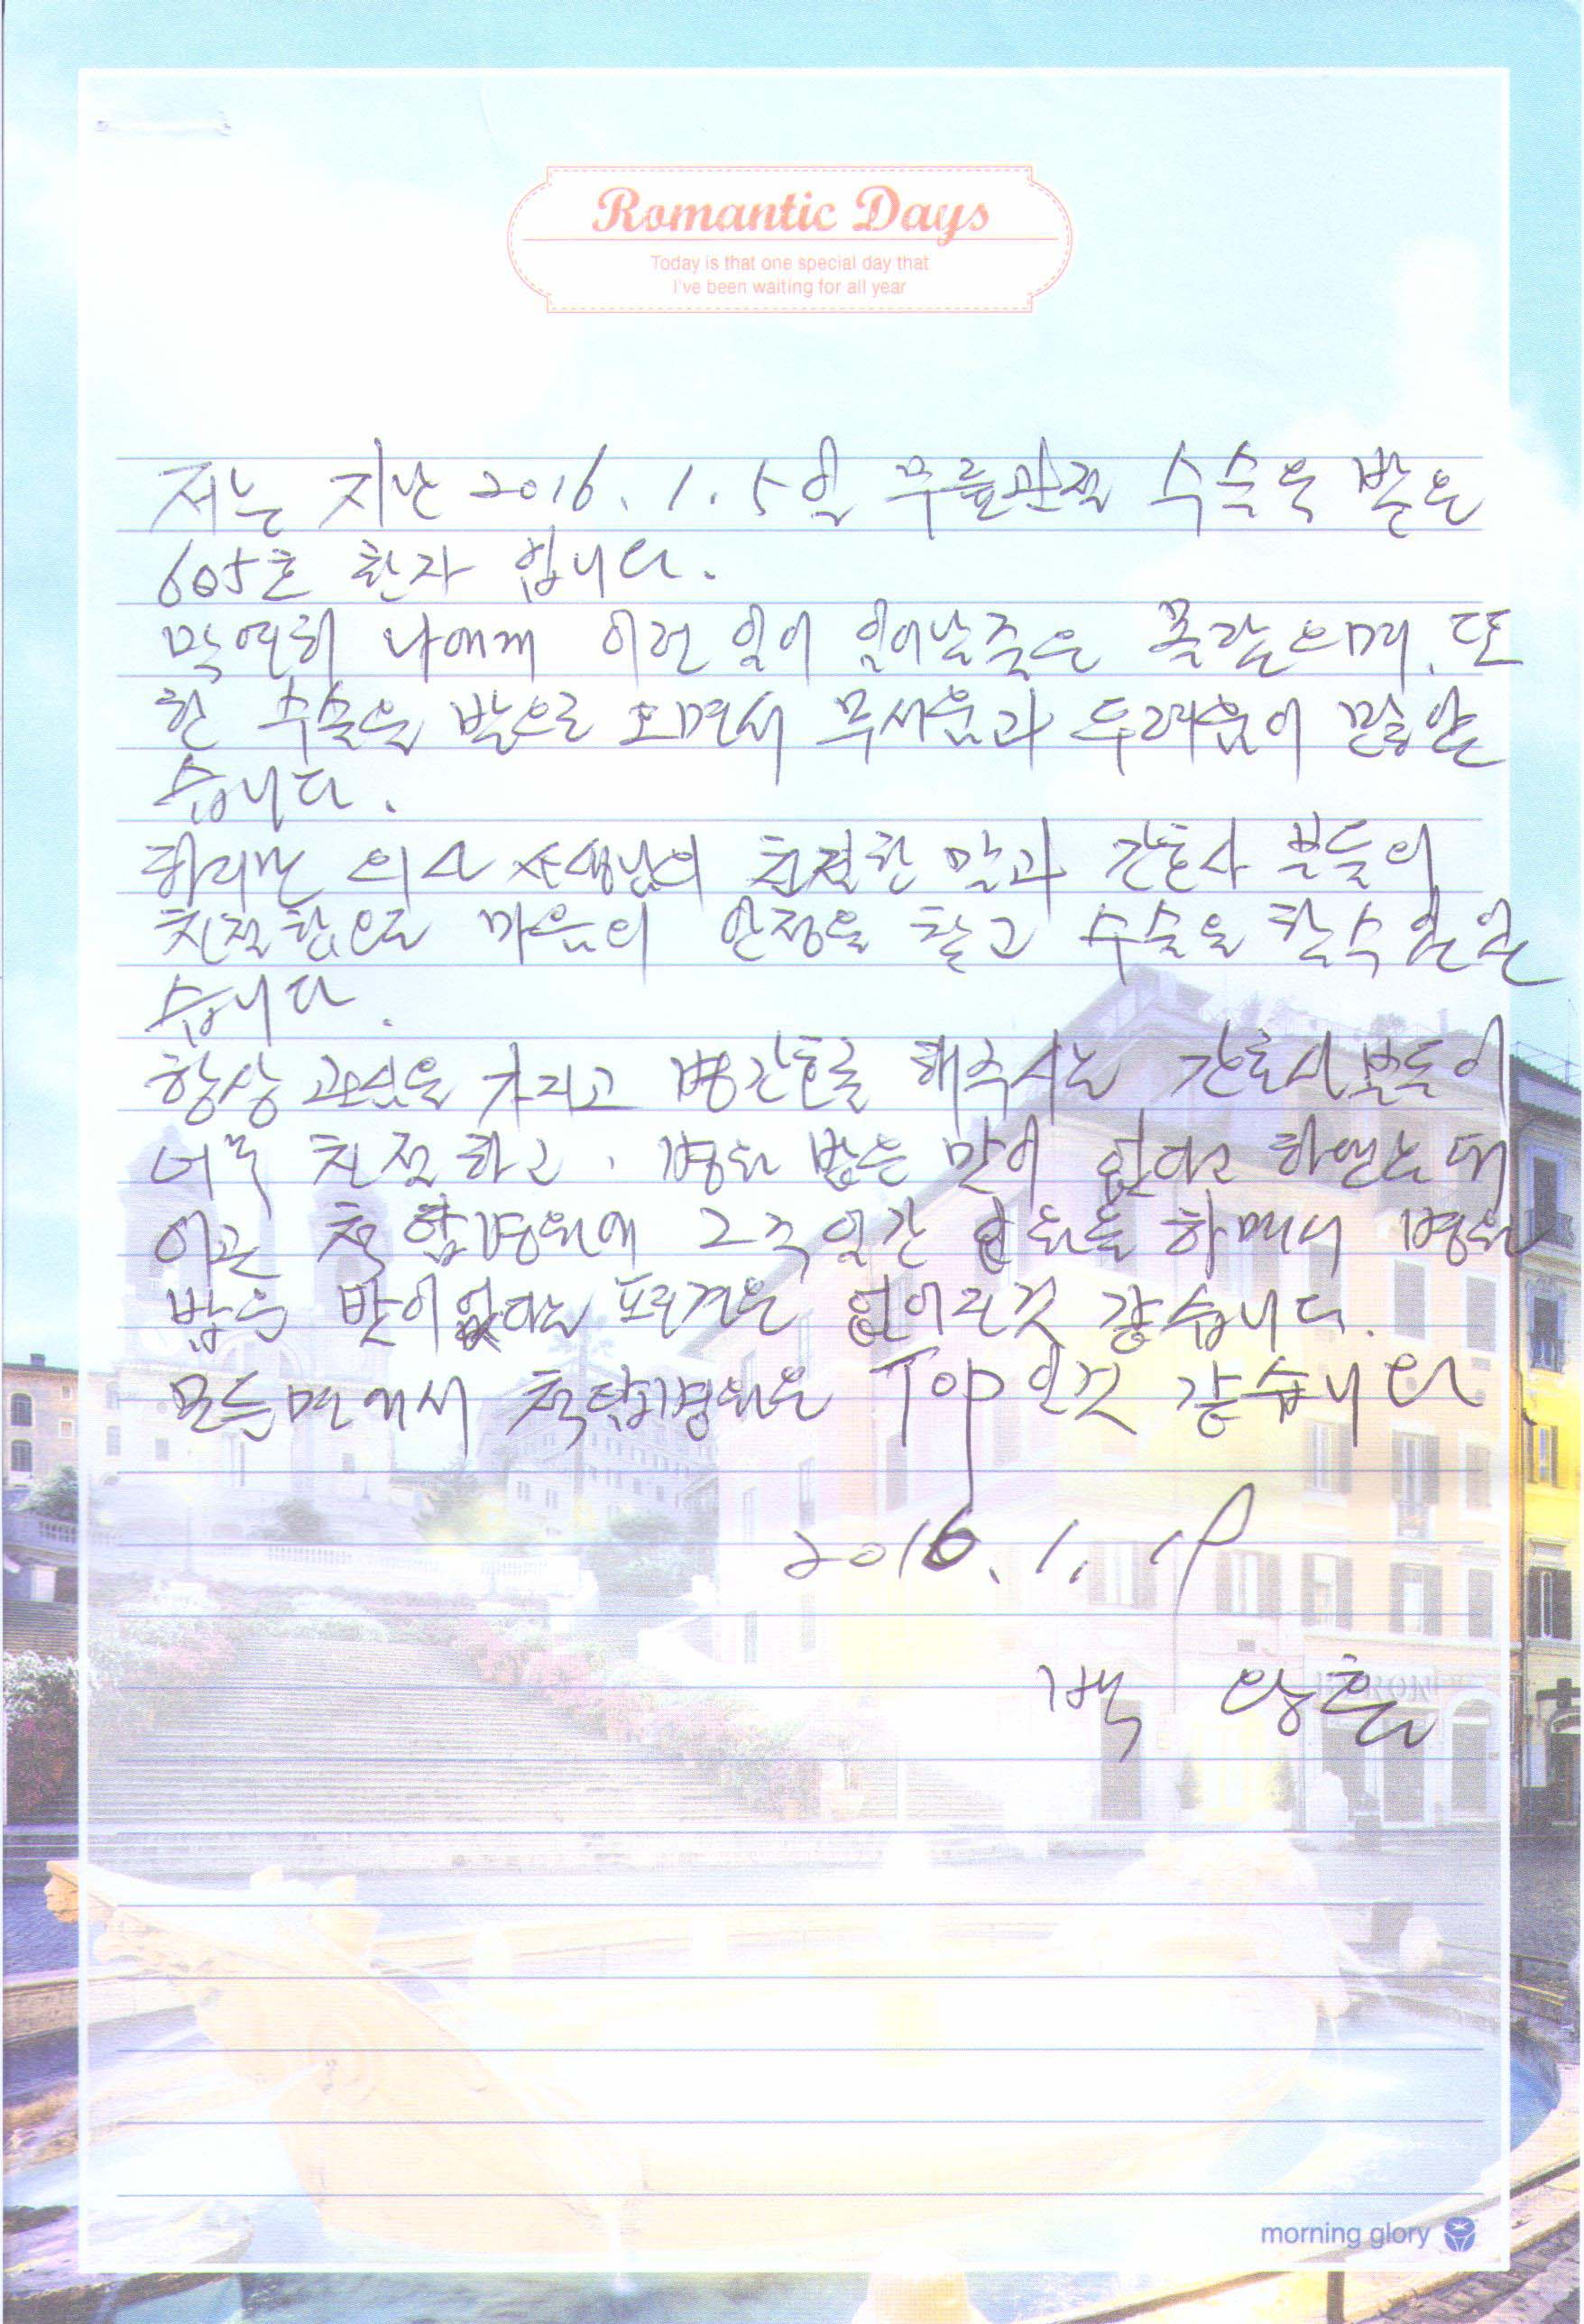 Romantic Days
Today is that one special day that
I've been waiting for all year
저는 지난 2016. 1. 5일 무릎관절 수술을 받은
605호 환자 입니다.
막연히 나에게 이런 일이 일어날줄은 몰랐으며, 또
한 수술을 받으로 오면서 무서움과 두려움이 많았
습니다.
하지만 의사 선생님의 친절한 말과 간호사 분들의
친절함으로 마음의 안정을 찾고 수술을 할수 있었
습니다.
항상 관심을 가지고 병간호를 해주시는 간호사분들이
너무 친절하고, 병원 밥은 맛이 없다고 하였는데
이곳 척탑병원에 2주일간 입원을 하면서 병원
밥은 맛이없다는 편견은 없어진것 같습니다.
모든면에서 척탑병원은 Top인것 같습니다
2016. 1. 19
백
morning glory